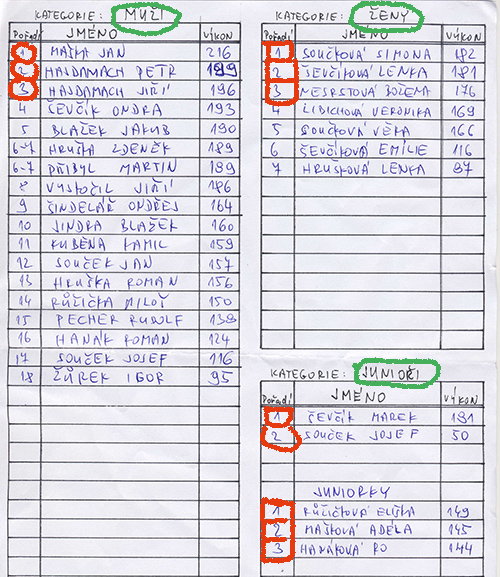 KATEGORIE: MUŽI
Pořadí JMÉNO VÝKON
1 MAŠKA JAN 216
2 HAJDAMACH PETR 199
3 HAJDAMACH JIŘÍ 196
4 ŠEVČÍK ONDRA 193
5 BLAŽEK JAKUB 190
6-7 HRUŠKA ZDENĚK 189
6-7 PŘIBYL MARTIN 189
8 VYSTOČIL JIŘÍ 186
9 ŠINDELÁŘ ONDŘEJ 164
10 JINDRA BLAŽEK 160
11 KUBĚNA KAMIL 159
12 SOUČEK JAN 157
13 HRUŠKA ROMAN 156
14 RŮŽIČKA MILOŠ 150
15 PECHER RUDOLF 138
16 HANÁK ROMAN 124
17 SOUČEK JOSEF 116
18 ŽŮREK IGOR 95
KATEGORIE: ŽENY
Pořadí JMÉNO VÝKON
1 SOUČKOVÁ SIMONA 182
2 ŠEVČÍKOVÁ LENKA 181
3 NESRSTOVÁ BOŽENA 176
4 LIBICHOVÁ VERONIKA 169
5 SOUČKOVÁ VĚRA 166
6 ŠEVČÍKOVÁ EMÍLIE 116
7 HRUŠKOVÁ LENKA 87
KATEGORIE: JUNIOŘI
Pořadí JMÉNO VÝKON
1 ŠEVČÍK MAREK 181
2 SOUČEK JOSEF 50
JUNIORKY
1 RŮŽIČKOVÁ ELIŠKA 149
2 MAŠKOVÁ ADÉLA 145
3 HANÁKOVÁ RO 144